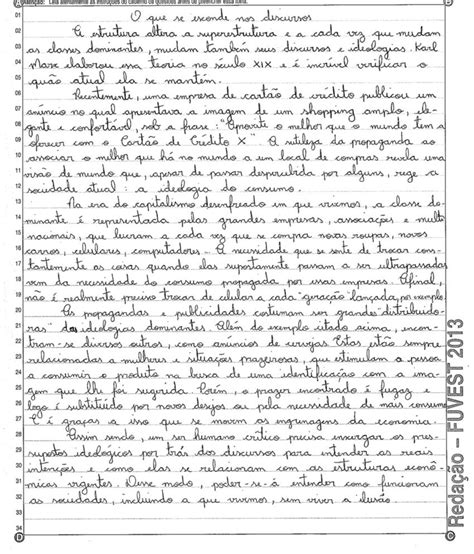 Atenção: Leia atentamente as instruções do caderno de questões antes de preencher essa folha.
01 O que se esconde nos discursos
02 A estrutura altera a superestrutura e a cada vez que mudam
03 as classes dominantes, mudam também seus discursos e ideologias. Karl
04 Marx elaborou essa teoria no século XIX e é incrível verificar o
05 quão atual ela se mantém.
06 Recentemente, uma empresa de cartão de crédito publicou um
07 anúncio no qual apresentava a imagem de um shopping amplo, ele-
08 gante e confortável, sob a frase: "Aproveite o melhor que o mundo tem a
09 oferecer com o Cartão de Crédito X". A sutileza da propaganda ao
10 associar o melhor que há no mundo a um local de compras revela uma
11 visão de mundo que, apesar de passar despercebida por alguns, rege a
12 sociedade atual: a ideologia do consumo.
13 Na era do capitalismo desenfreado em que vivemos, a classe do-
14 minante é representada pelas grandes empresas, associações e multi
15 nacionais, que lucram a cada vez que se compra novas roupas, novos
16 carros, celulares, computadores. A necessidade que se sente de trocar cons-
17 tantemente as coisas quando elas supostamente passam a ser ultrapassadas
18 vem da necessidade do consumo propagada por essas empresas. Afinal,
19 não é realmente preciso trocar de celular a cada "geração" lançada, por exemplo.
20 As propagandas e publicidades costumam ser grandes distribuido-
21 ras das ideologias dominantes. Além do exemplo citado acima, encon-
22 tram-se diversos outros, como anúncios de cervejas. Estas estão sempre
23 relacionadas a mulheres e situações prazerosas, que estimulam a pessoa
24 a consumir o produto na busca de uma identificação com a ima-
25 gem que lhe foi sugerida. Porém, o prazer encontrado é fugaz e
26 logo é substituído por novos desejos ou pela necessidade de mais consumo
27 E é graças a isso que se movem as engrenagens da economia.
28 Assim sendo, um ser humano crítico precisa enxergar os pres-
29 supostos ideológicos por trás dos discursos para entender as reais
30 intenções e como elas se relacionam com as estruturas econô-
31 micas vigentes. Desse modo, poder-se-á entender como funcionam
32 as sociedades, incluindo a que vivemos, sem viver a ilusão.
33
34
Redação – FUVEST 2013